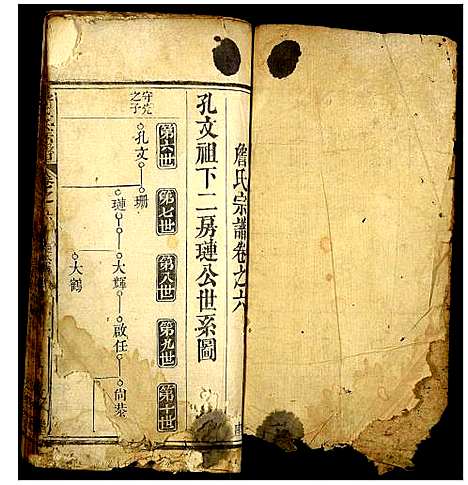 詹氏宗譜卷之六
孔文祖下二房璉公世系圖
第六世
第七世
第八世
第九世
第十世
守荒之子
孔文
珊
璉
大輝
啟任
尚棻
大鶴